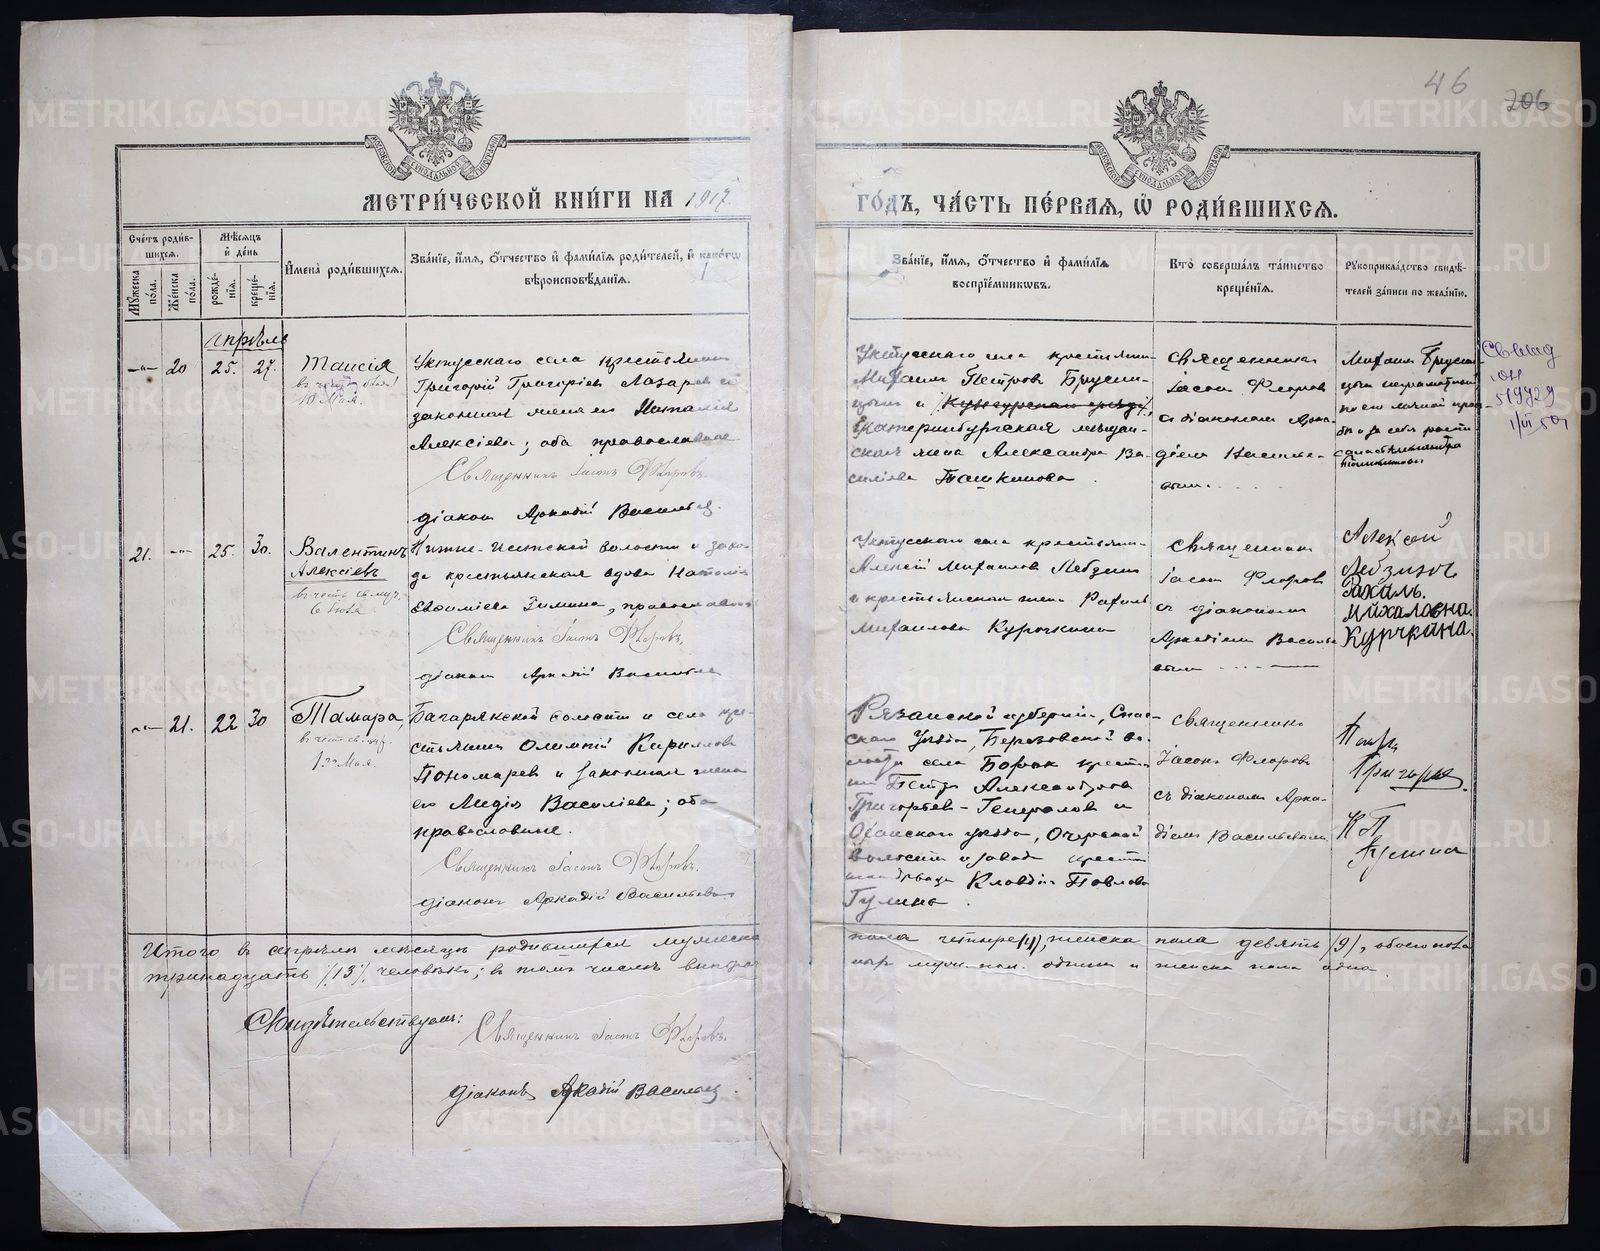 46
206
МЕТРИ́ЧЕСКОЙ КНИ́ГИ НА 1917.
ГО́ДЪ, ЧА́СТЬ ПЕ́РВАЯ, Ѡ҆ РОДИ́ВШИХСЯ.
Сче́тъ роди́в-
шихся.
Му́жеска по́ла.
Же́нска по́ла.
Мѣ́сяцъ и҆ де́нь
рожде́-
нїя.
креще́-
нїя.
И҆мена̀ роди́вшихся.
Зва́нїе, и҆́мя, ѻ҆́тчество и҆ фами́лїя роди́телей, и҆ како́гѡ
вѣроисповѣ́данїя.
Зва́нїе, и҆́мя, ѻ҆́тчество и҆ фами́лїя
воспрїе́мникѡвъ.
Кто̀ соверша́лъ та́инство
креще́нїя.
Рꙋкоприкла́дство свидѣ́-
телей за́писи по жела́нїю.
апрѣль
20
25.
27.
Таисія
10 Мая.
Уктусскаго села крестьянинъ
Григорій Григоріевъ Лазарев и
законная жена его Наталія
Алексіева; оба православные
Священникъ Іасонъ Флоровъ.
діаконъ Аркадій Васильев.
Уктусскаго села крестьянин
Михаилъ Петровъ Брусни-
цынъ и
Екатеринбургская мѣщан-
ская жена Александра Ва-
силіева Пашкинова.
священникъ
Іасонъ Флоровъ
с діакономъ Арка-
діемъ Василье-
вым.
Михаилъ Брусни-
цынъ неграмотный
519729
21.
25.
30.
Валентинъ
Алексіевъ
Нижне-Исетской волости и заво-
да крестьянская вдова Наталія
Евѳиміева Зимина, православная
Священникъ Іасонъ Флоровъ.
діаконъ Аркадій Васильев
Уктусскаго села крестьянин
Алексій Михаиловъ Лебзинъ
и крестьянская жена Рахиль
Михаилова Курочкина
священник
Іасонъ Флоровъ
съ діакономъ
Аркадіемъ Василье
вым
Алексѣй
Лебзинъ
Рахаль.
Михаловна.
Курчкина.
21.
22
30
Тамара,
1го Мая.
Багарякской волости и села кре-
стьянинъ Олимпій Кирилловъ
Пономарев и законная жена
его Лидія Василіева; оба
православные.
Священникъ Іасонъ Флоровъ.
діаконъ Аркадій Васильевъ
Рязанской губерніи, Спас-
скаго Уѣзда, Березовской во-
лости села Борокъ крестья-
нинъ Петръ Александровъ
Григорьев-Генералов и
Оханскаго уѣзда, Очерской
волости и завода крестьян-
Клавдія Павлова
Гулина.
священникъ
Іасонъ Флоровъ
съ діакономъ Арка-
діемъ Васильевымъ
Петръ
Григорье
К П
Гулина
Итого в апрѣлѣ мѣсяцѣ родившихся мужеска
пола четыре (4), женска пола девять (9), обоего пола
тринадцать (13) человѣкъ; в томъ числѣ
Свидѣтельствуемъ:
Священникъ Іасонъ Флоровъ.
діаконъ Аркадій Васильев.